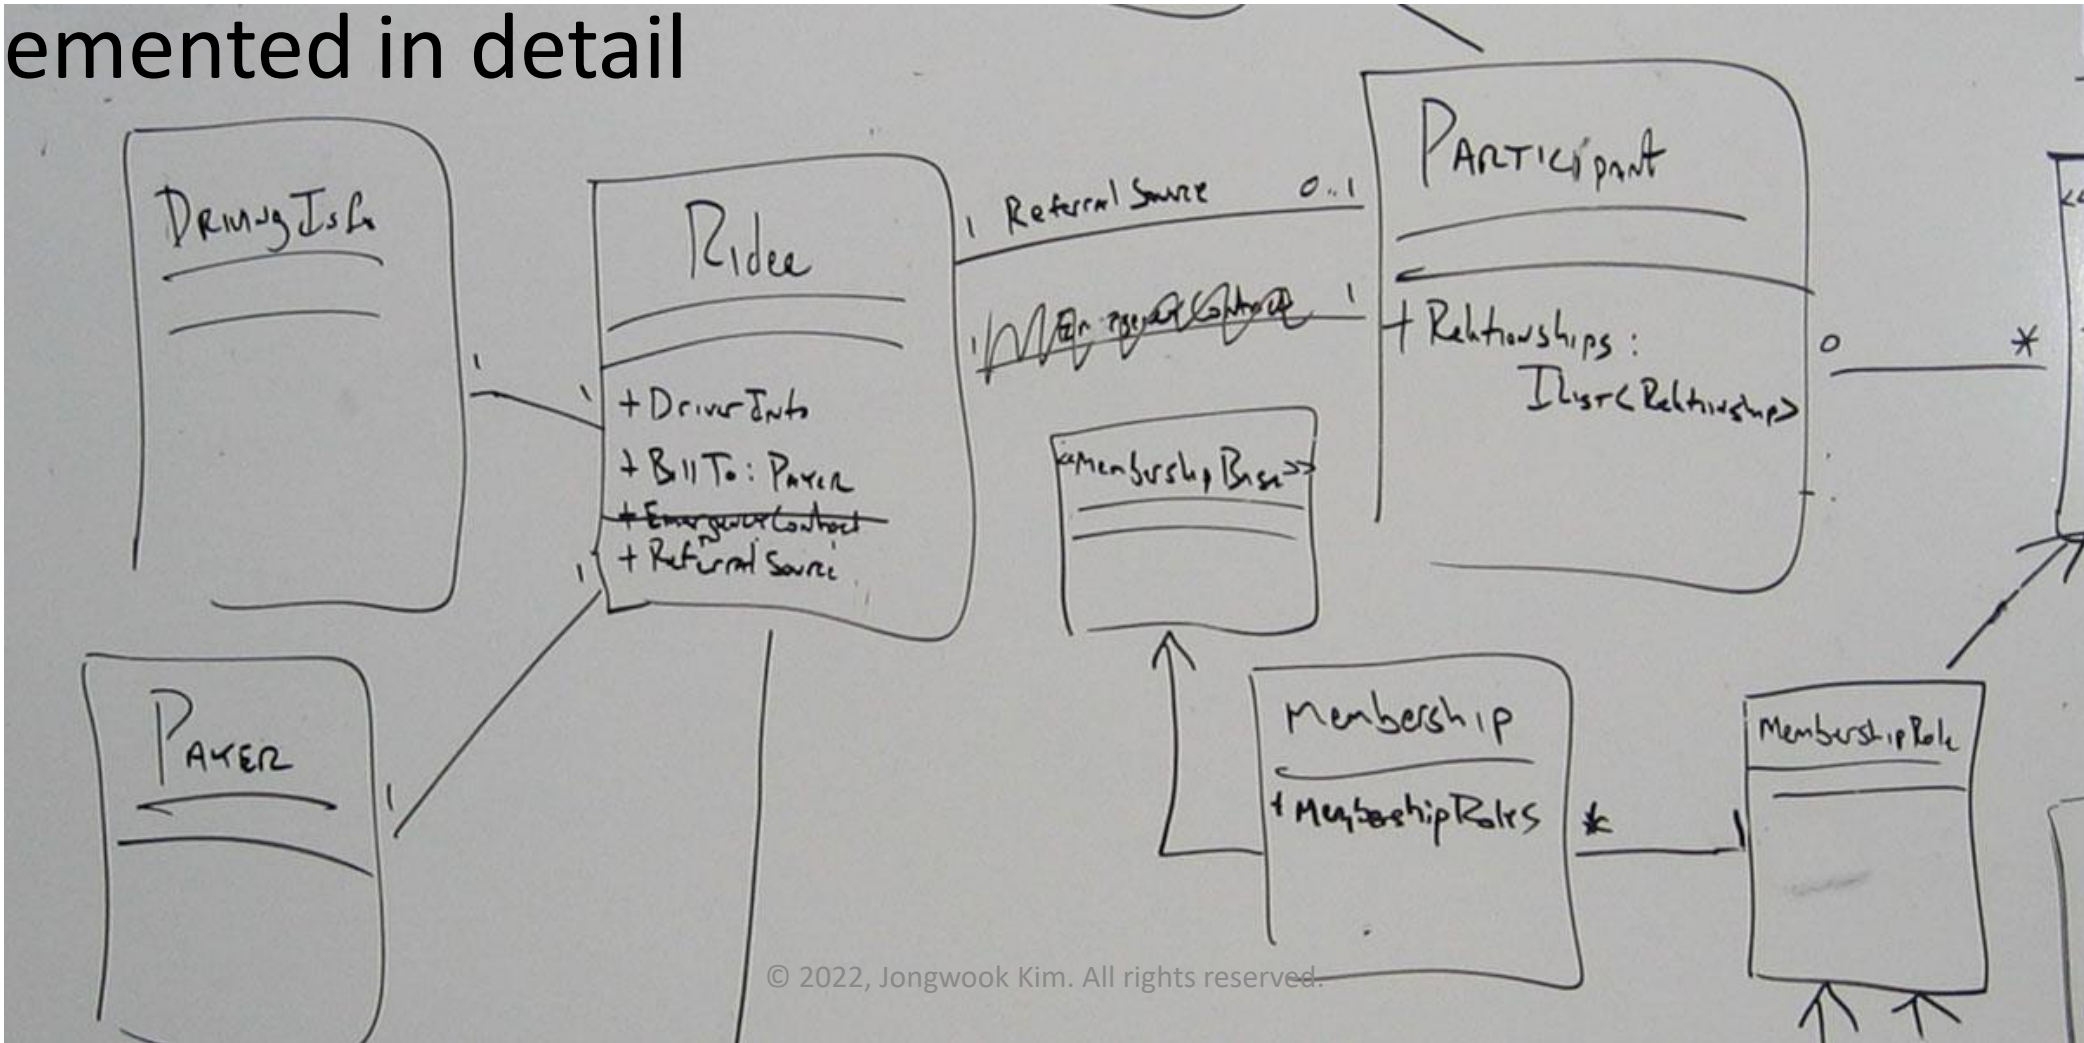 emented in detail
DrivingInfo
1
1
Rider
+ DriverInfo
+ BillTo: Payer
+ EmergencyContact
+ Referral Source
1
1
Payer
1 Referral Source 0..1
1 Emergency Contact 1
Participant
+ Relationships:
IList<Relationship>
0 *
<<
<<MembershipBase>>
Membership
+ MembershipRoles
* 1
MembershipRole
© 2022, Jongwook Kim. All rights reserved.